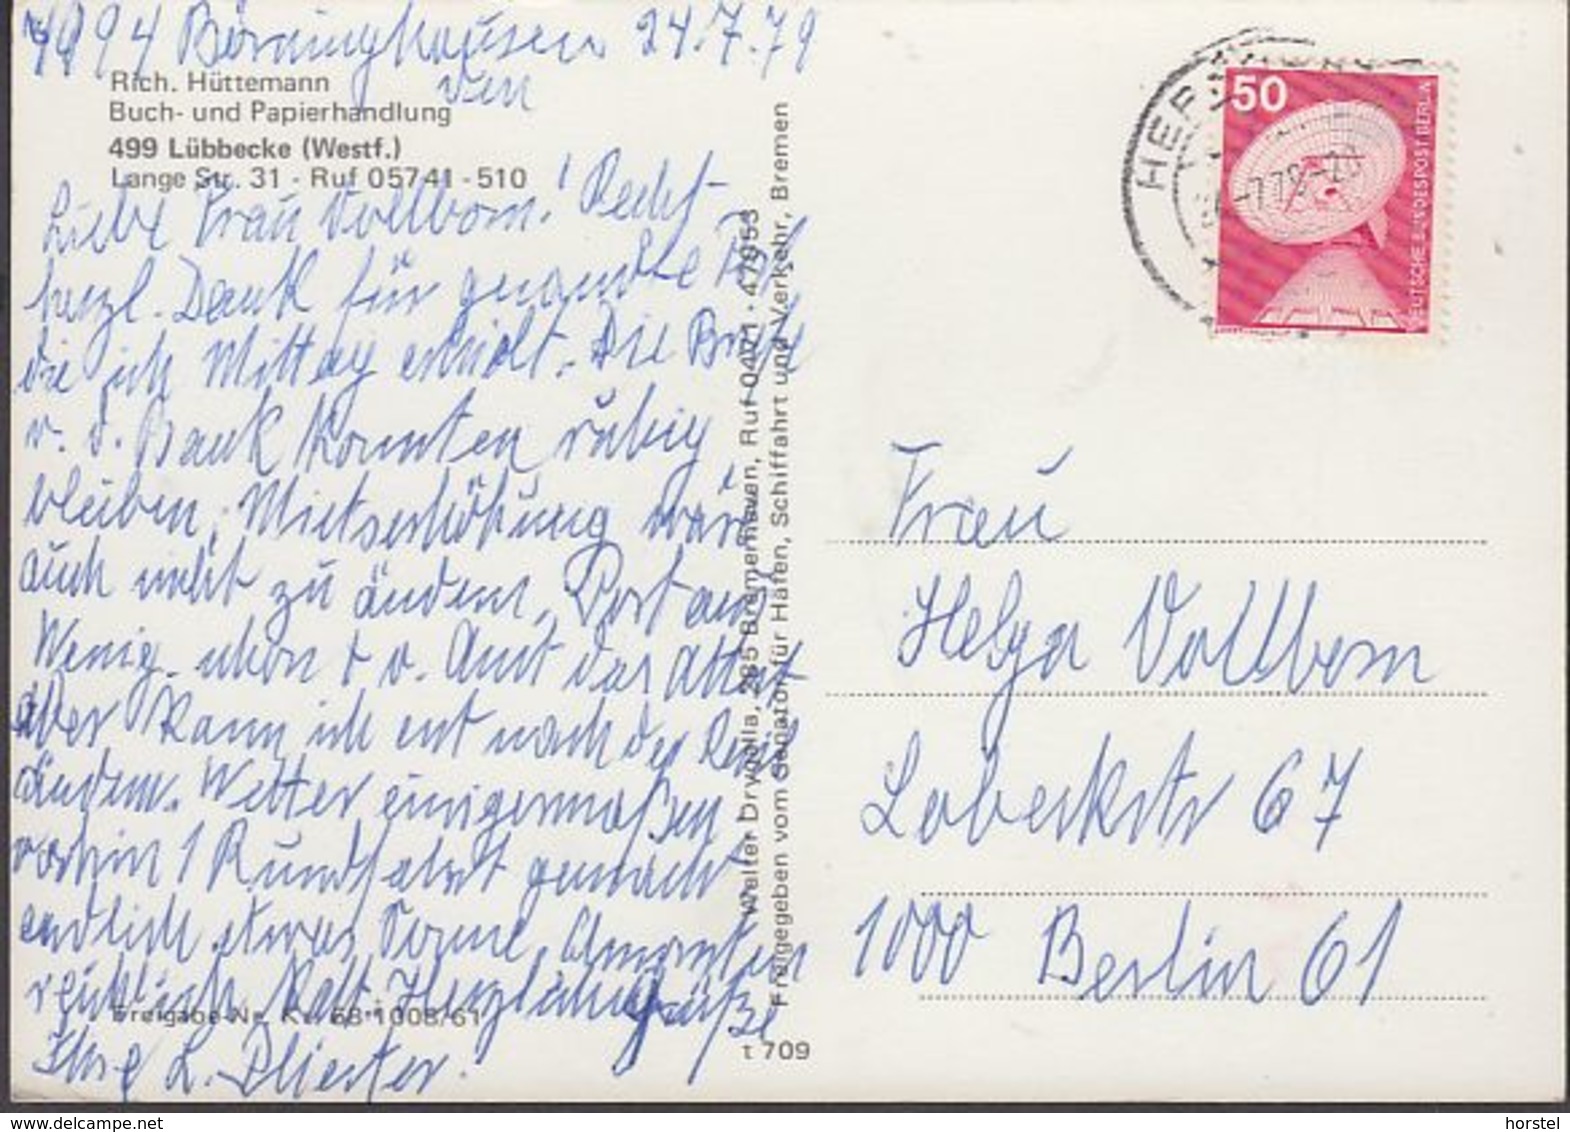 4994 Börninghausen 24.7.79
den
Rich. Hüttemann
Buch- und Papierhandlung
499 Lübbecke (Westf.)
Lange Str. 31 - Ruf 05741-510
Liebe Frau Vollbom! Recht
herzl. Dank für gesandte
die ich Mittag erhielt. Die Briefe
v. d. Bank konnten ruhig
bleiben, Mietserhöhung wär
auch nicht zu ändern, Post aus
Wenig v. Amt das Attest
aber kann ich erst nach der
ändern. Wetter einigermaßen
vorhin 1 Rundfahrt gemacht
endlich etwas Sonne,
reichlich kalt. Herzliche Grüße
Ihre L.
Freigabe-Nr. 68.1008/61
Walter Drygalla, 285 Bremerhaven, Ruf 0471 · 47053
Freigegeben vom Senator für Häfen, Schiffahrt und Verkehr, Bremen
τ 709
50
DEUTSCHE BUNDESPOST BERLIN
Frau
Helga Vollbom
Lobeckstr 67
1000 Berlin 61
www.delcampe.net
horstel